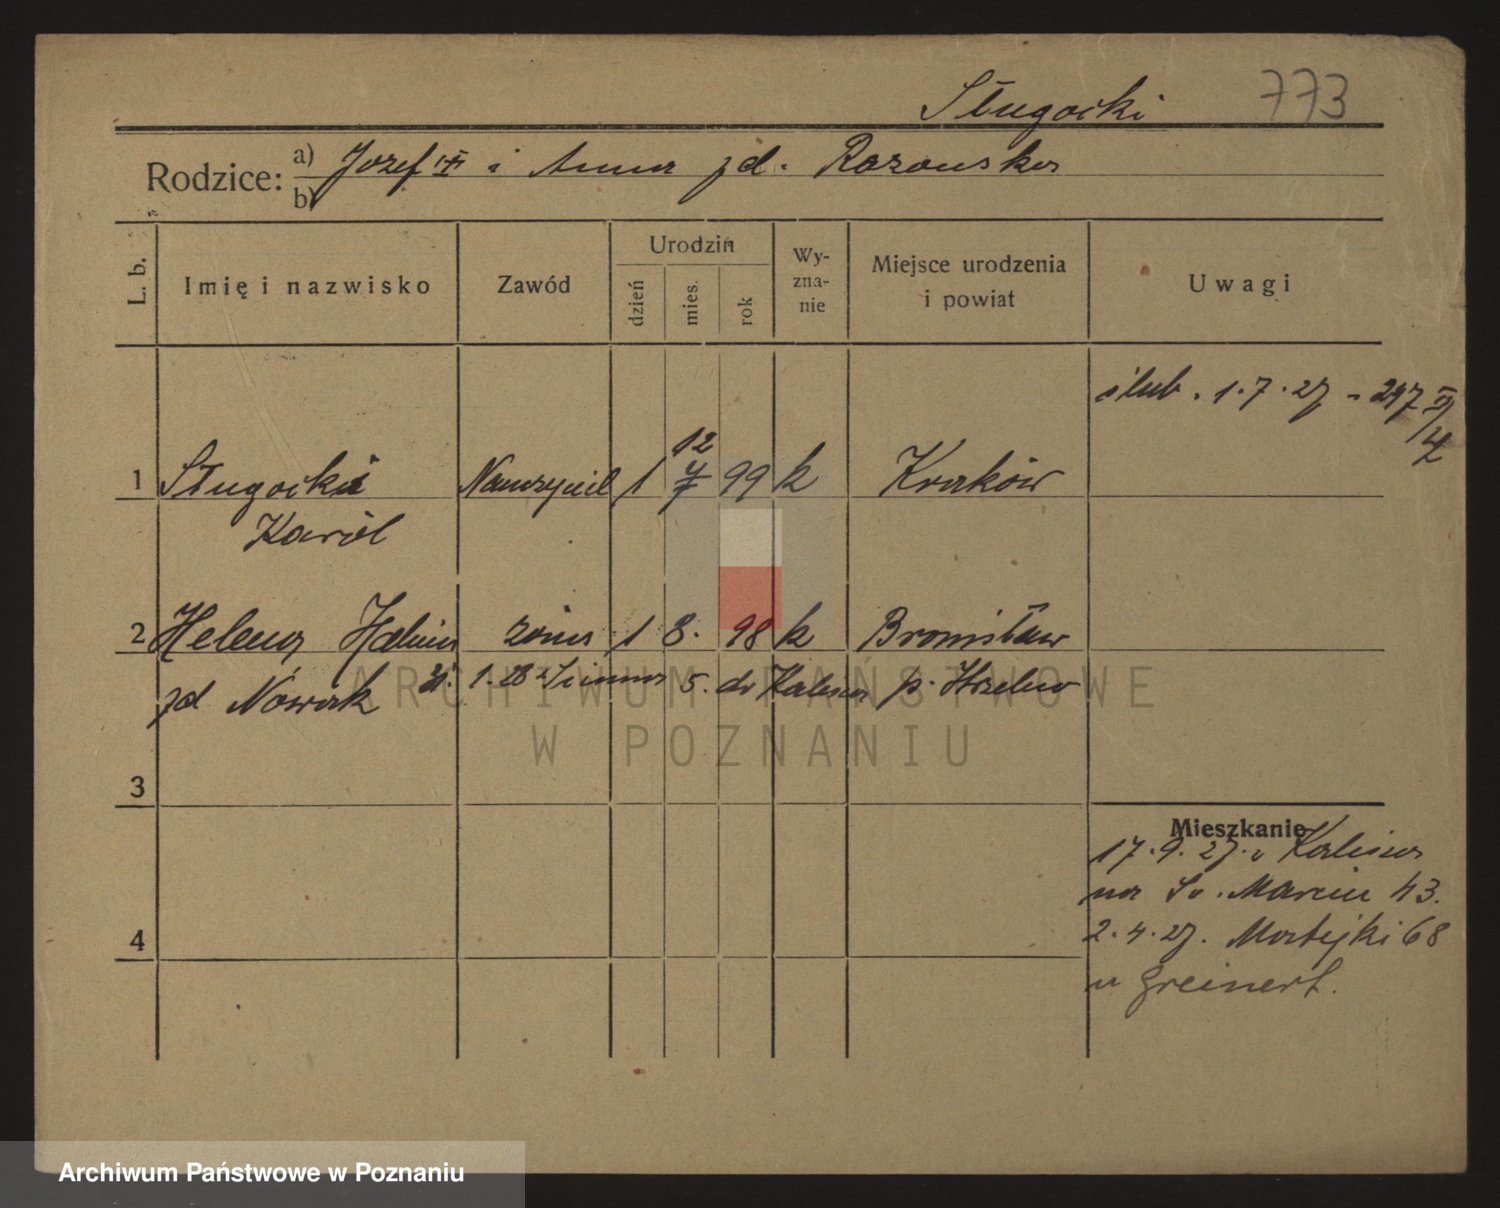 Sługocki 773
Rodzice: a) Jozef i Anna zd. Rozanska
b)
L. b. Imię i nazwisko Zawód Urodzin dzień mies. rok Wyznanie Miejsce urodzenia i powiat Uwagi
ślub. 1.7.27 - 297
12
1 Sługocki Nauczyciel 1 7 99 k Kraków
Karol
2 Helena Halina żona 1 8. 98 k Bronisław
zd Nowak 31.1.28 5. do Kalisza p. Strzelno
3
Mieszkanie
17.9.27. z Kalisza
na Św. Marcin 43.
4 2.4.27. Matejki 68
u Greinert.
ARCHIWUM PAŃSTWOWE
W POZNANIU
Archiwum Państwowe w Poznaniu